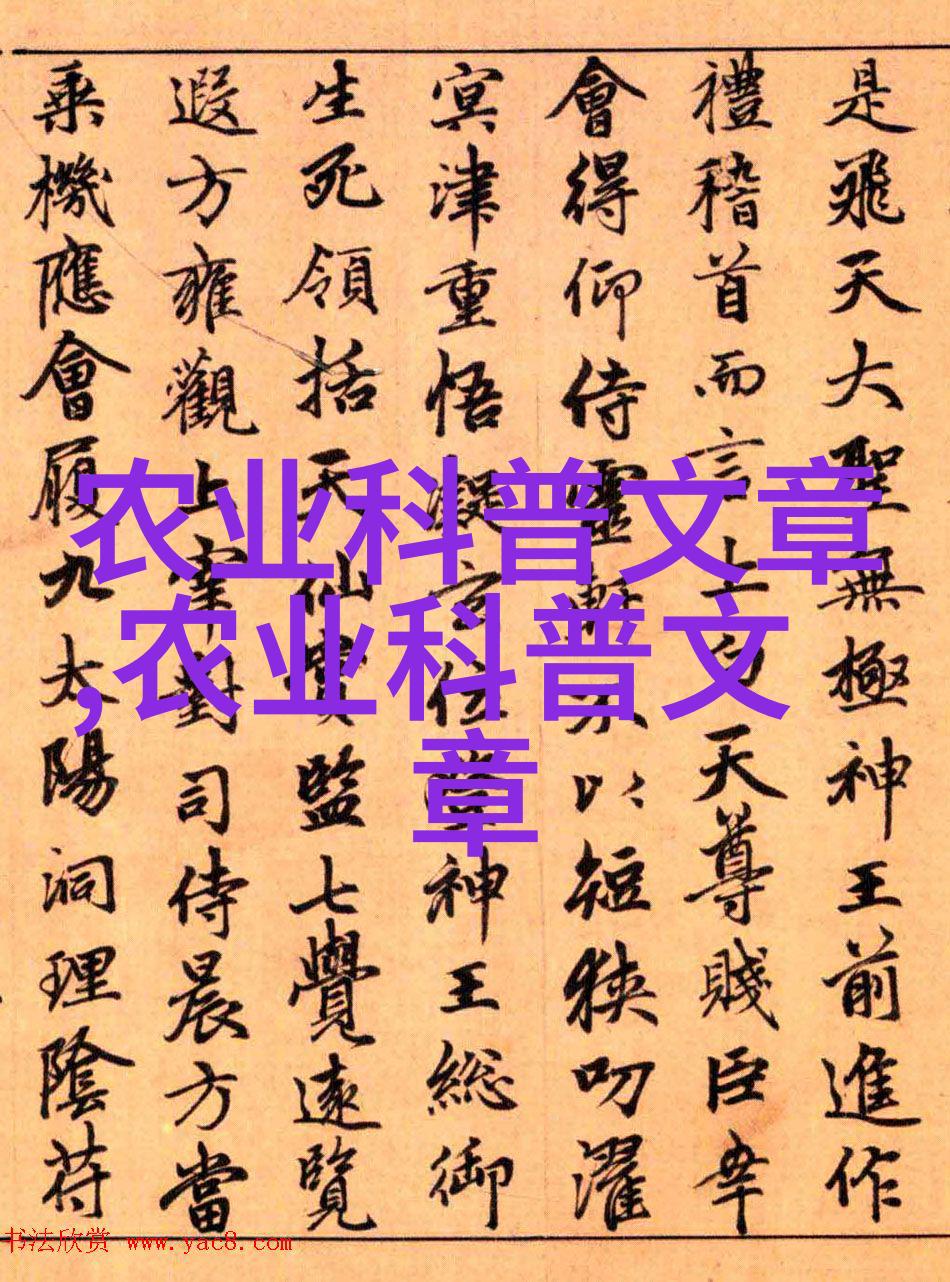 是飛天大聖無極神王前進作
禮稽首而言上白天尊賤臣幸
會得仰侍靈不以短狹叨濯
冥津重悟位神王総御
生死領括天仙監七覺遠覽
遐方雍觀上宰對司侍晨方當
乗機應會履九太陽洞理陰苻
农业科普文章
,农业科普文
章
书法欣赏 www.yac8.com